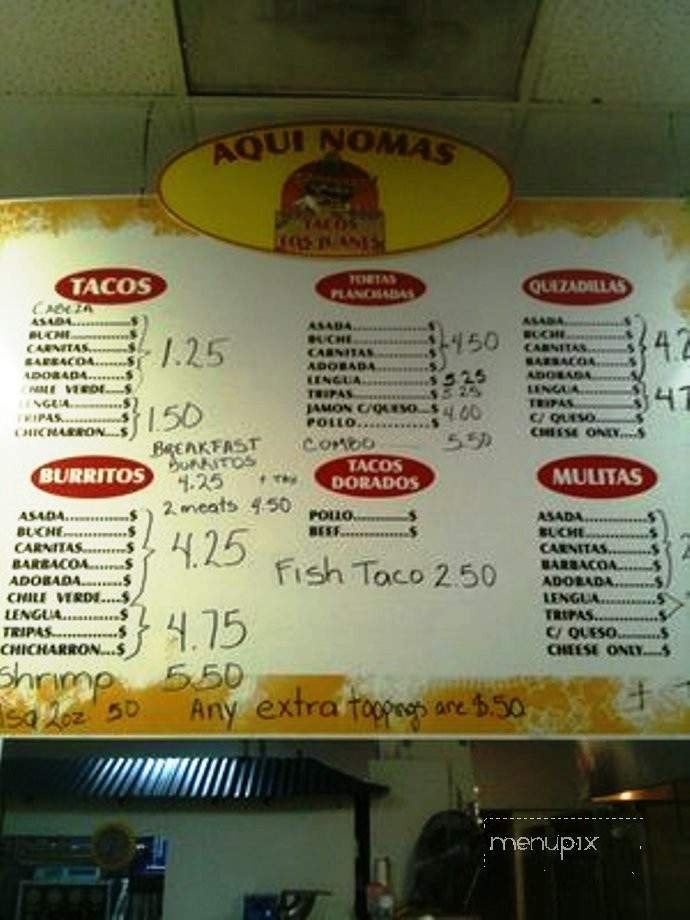 AQUI NOMAS
TACOS
LOS JUANES
TACOS
CABEZA
ASADA.............$
BUCHE.............$
CARNITAS..........$
BARBACOA........$
ADOBADA.........$
CHILE VERDE....$
LENGUA............$
TRIPAS.............$
CHICHARRON...$
1.25
1.50
TORTAS
PLANCHADAS
ASADA......................$
BUCHE......................$
CARNITAS..................$
ADOBADA..................$
LENGUA....................$
TRIPAS......................$
JAMON C/QUESO...$
POLLO......................$
COMBO
4.50
5.25
5.25
4.00
5.50
QUEZADILLAS
ASADA....................$
BUCHE....................$
CARNITAS...............$
BARBACOA.............$
ADOBADA...............$
LENGUA..................$
TRIPAS....................$
C/ QUESO...............$
CHEESE ONLY....$
BREAKFAST
BURRITOS
4.25 + TAX
2 meats 4.50
BURRITOS
ASADA..............$
BUCHE..............$
CARNITAS.........$
BARBACOA.......$
ADOBADA.........$
CHILE VERDE....$
LENGUA.............$
TRIPAS..............$
CHICHARRON...$
4.25
4.75
Shrimp 5.50
TACOS
DORADOS
POLLO.............$
BEEF................$
Fish Taco 2.50
MULITAS
ASADA..................$
BUCHE..................$
CARNITAS.............$
BARBACOA...........$
ADOBADA.............$
LENGUA................$
TRIPAS..................$
C/ QUESO.............$
CHEESE ONLY....$
2oz 50
Any extra toppings are $.50
menupix